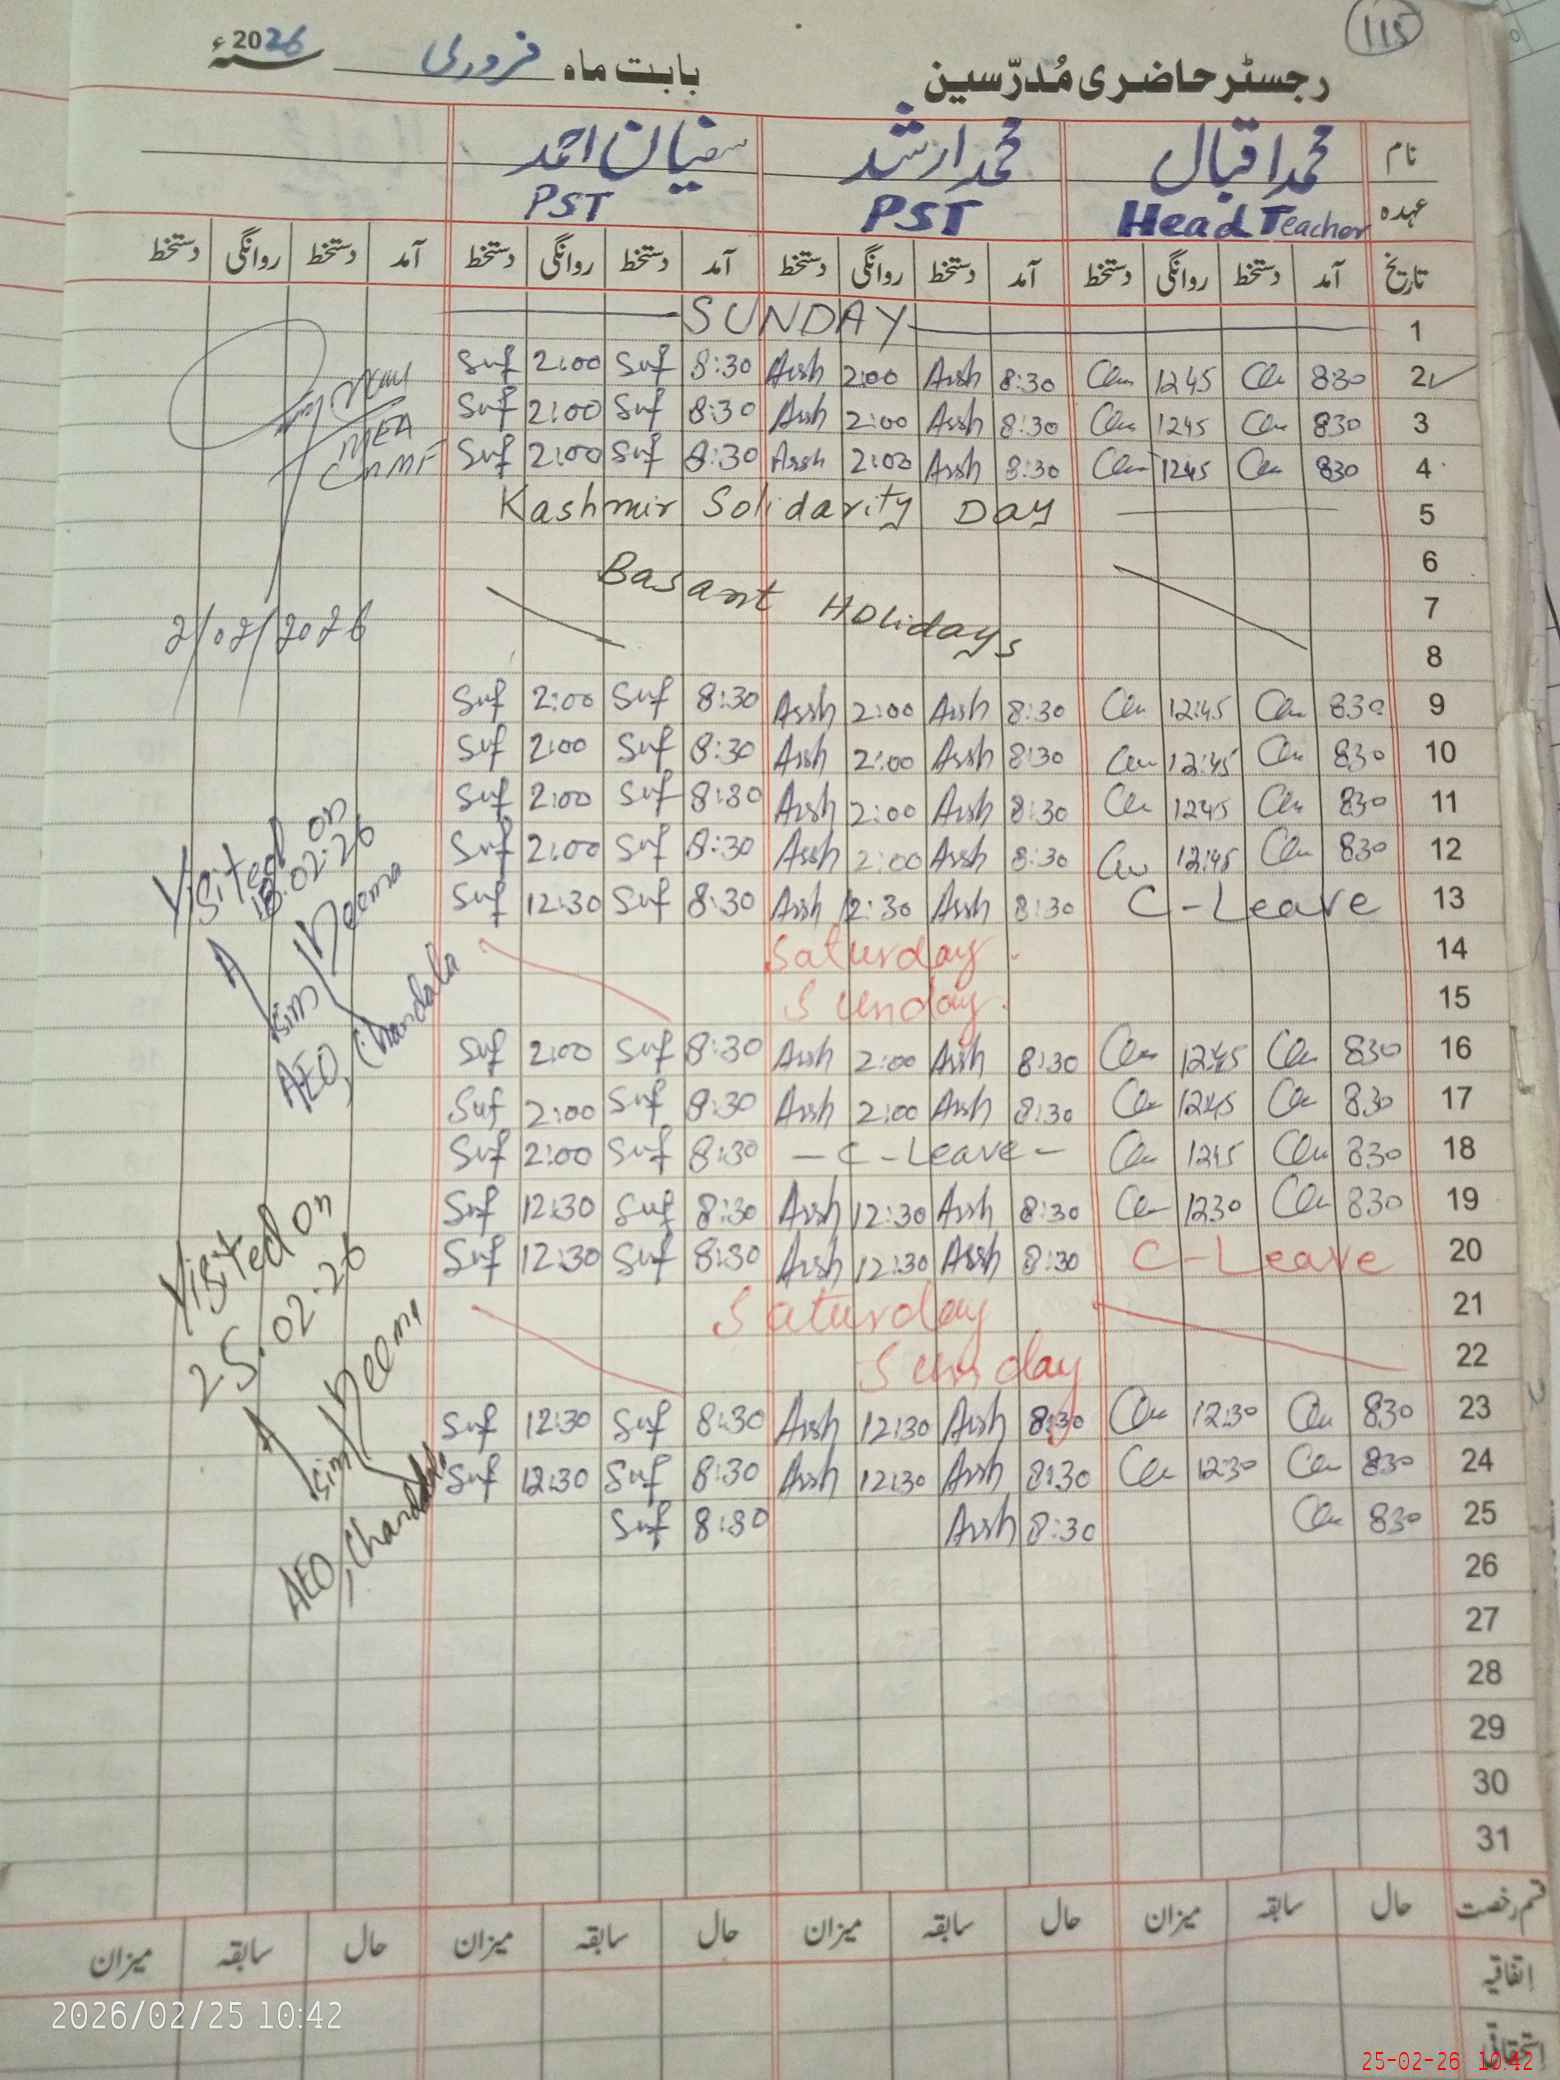 115
رجسٹر حاضری مُدرّسین بابت ماہ فروری سنہ 2026ء
نام محمد اقبال محمد ارشد سفیان احمد
عہدہ Head Teacher PST PST
تاریخ آمد دستخط روانگی دستخط آمد دستخط روانگی دستخط آمد دستخط روانگی دستخط آمد دستخط روانگی دستخط
1 SUNDAY
Suf 2:00 Suf 8:30 Arsh 2:00 Arsh 8:30 1245 830 2
Suf 2:00 Suf 8:30 Arsh 2:00 Arsh 8:30 1245 830 3
Suf 2:00 Suf 8:30 Arsh 2:00 Arsh 8:30 1245 830 4
MEA
Kashmir Solidarity Day 5
6
Basant Holidays 7
2/02/2026
8
Suf 2:00 Suf 8:30 Arsh 2:00 Arsh 8:30 12:45 830 9
Suf 2:00 Suf 8:30 Arsh 2:00 Arsh 8:30 12:45 830 10
Suf 2:00 Suf 8:30 Arsh 2:00 Arsh 8:30 1245 830 11
Suf 2:00 Suf 8:30 Arsh 2:00 Arsh 8:30 12:45 830 12
Suf 12:30 Suf 8:30 Arsh 12:30 Arsh 8:30 C-Leave 13
Visited on
02.26
Asim Neema
AEO, Chandala
Saturday 14
Sunday 15
Suf 2:00 Suf 8:30 Arsh 2:00 Arsh 8:30 1245 830 16
Suf 2:00 Suf 8:30 Arsh 2:00 Arsh 8:30 1245 830 17
Suf 2:00 Suf 8:30 - C - Leave - 1245 830 18
Suf 12:30 Suf 8:30 Arsh 12:30 Arsh 8:30 1230 830 19
Suf 12:30 Suf 8:30 Arsh 12:30 Arsh 8:30 C-Leave 20
Visited on
25.02.26
Asim
AEO, Chandala
Saturday 21
Sunday 22
Suf 12:30 Suf 8:30 Arsh 12:30 Arsh 8:30 12:30 830 23
Suf 12:30 Suf 8:30 Arsh 12:30 Arsh 8:30 12:30 830 24
Suf 8:30 Arsh 8:30 830 25
26
27
28
29
30
31
قسم رخصت حال سابقہ میزان حال سابقہ میزان حال سابقہ میزان حال سابقہ میزان
اتفاقیہ
استحقاقی
2026/02/25 10:42
25-02-26 10:42